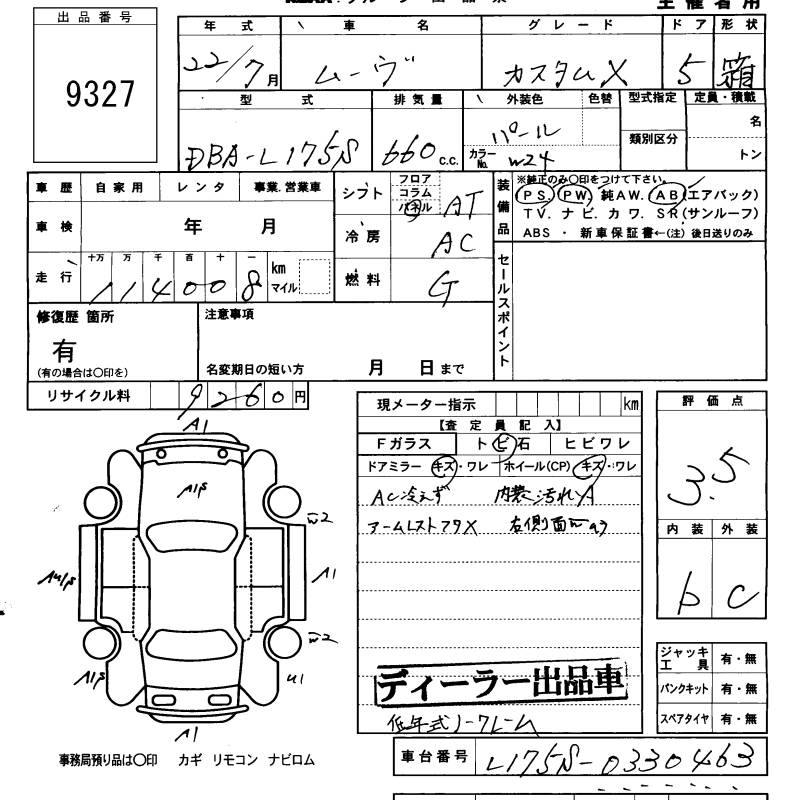 主催者用
出品番号
9327
年式 車名 グレード ドア 形状
22/7月 ムーヴ カスタムX 5 箱
型式 排気量 外装色 色替 型式指定 定員・積載
DBA-L175S 660 c.c. パール
カラーNo. W24 類別区分 名
トン
車歴 自家用 レンタ 事業.営業車
車検 年 月
走行 十万 万 千 百 十 一
114008 km マイル
シフト フロア コラム パネル AT
冷房 AC
燃料 G
装備品 ※純正のみ〇印をつけて下さい。
PS. PW. 純AW. AB(エアバック)
TV. ナビ. カワ. SR(サンルーフ)
ABS ・ 新車保証書←(注)後日送りのみ
セールスポイント
修復歴 箇所
有
(有の場合は〇印を)
注意事項
名変期日の短い方 月 日まで
リサイクル料 9260円
現メーター指示 km
【査定員記入】
Fガラス トビ石 ヒビワレ
ドアミラー キズ・ワレ ホイール(CP) キズ・ワレ
AC冷えず 内装汚れA
アームレストフタX 右側面
ディーラー出品車
低年式ノークレーム
評価点
3.5
内装 外装
b C
ジャッキ工具 有・無
パンクキット 有・無
スペアタイヤ 有・無
A1
A1P
W2
A1
W2
A1P
U1
A1
事務局預り品は〇印 カギ リモコン ナビロム
車台番号 L175S-0330463